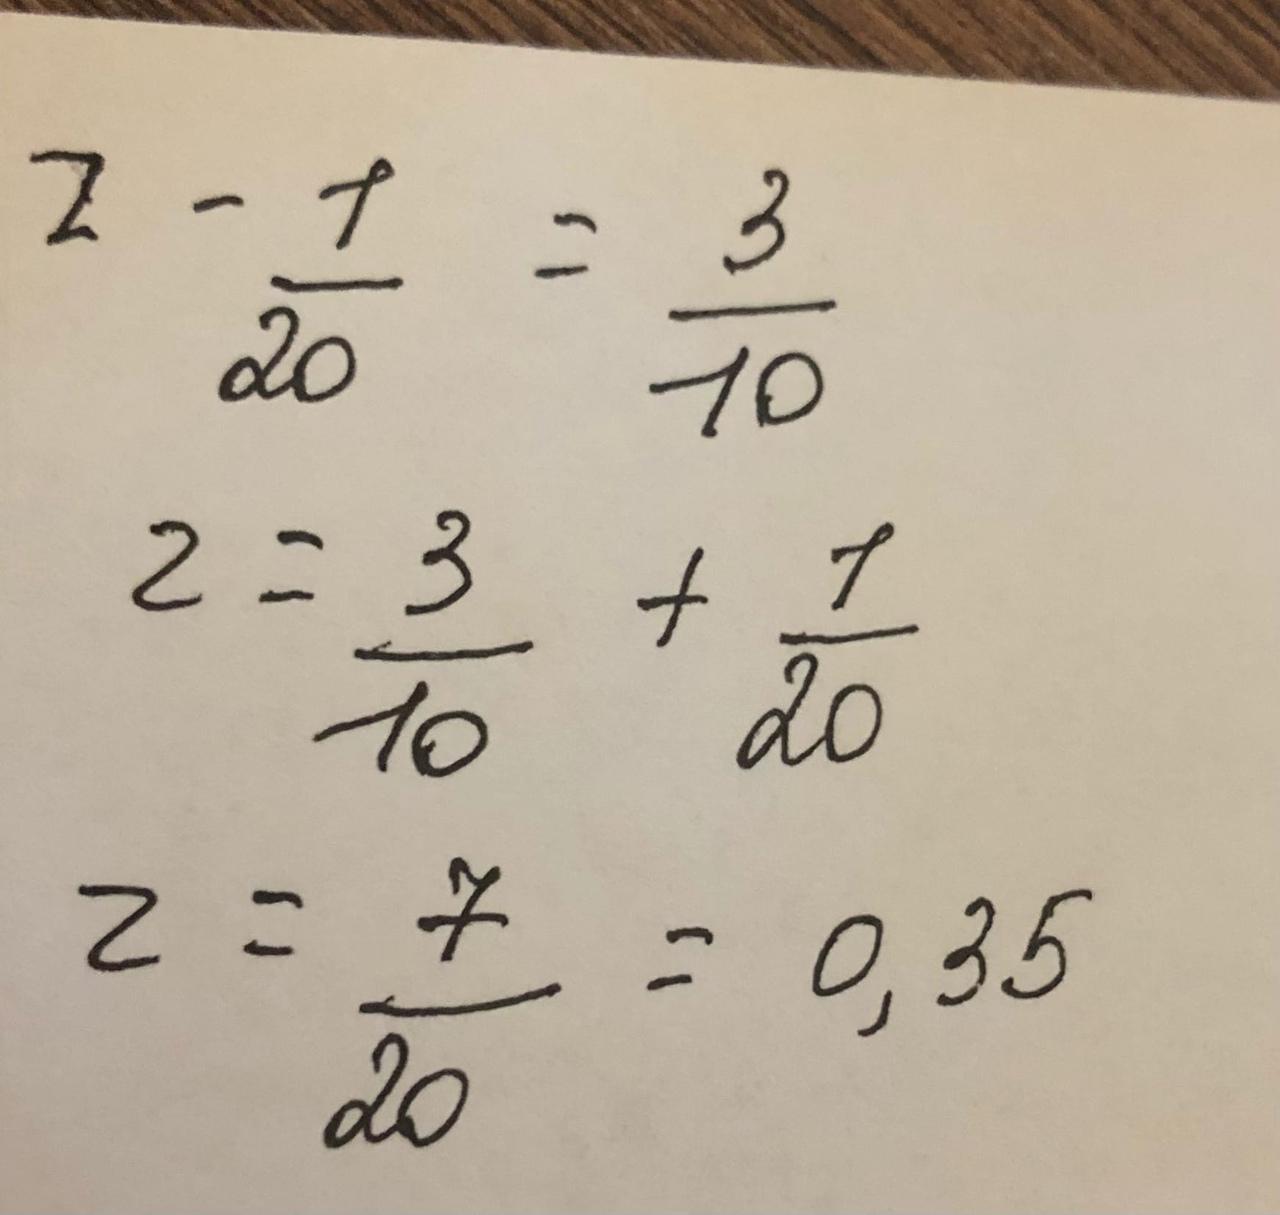 z - 1/20 = 3/10
z = 3/10 + 1/20
z = 7/20 = 0,35